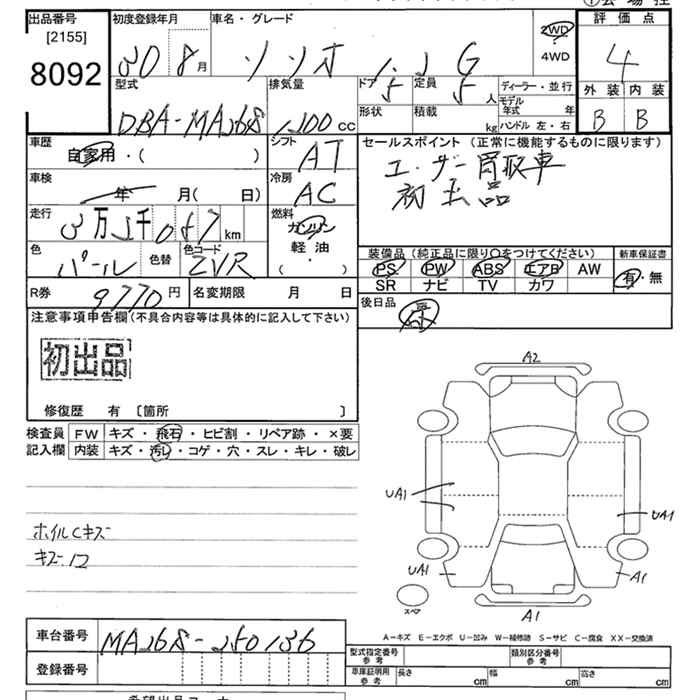 出品番号
[2155]
8092
初度登録年月
30 8月
車名・グレード
ソリオ 1.2 G
2WD
4WD
評価点
4
外装 内装
B B
型式
DBA-MA26S
排気量
1200cc
ドア
5
形状
定員
5人
積載
kg
ディーラー・並行
モデル年式 年
ハンドル 左・右
車歴
自家用・( )
シフト
AT
車検
年 月( 日)
冷房
AC
走行
km
燃料
ガソリン
軽・油
( )
色
パール
色替
色コード
ZVR
セールスポイント(正常に機能するものに限ります)
ユーザー買取車
初出品
装備品(純正品に限り○をつけてください)
新車保証書
PS PW ABS エアB AW
SR ナビ TV カワ
有・無
R券
9770円
名変期限 月 日
後日品
注意事項申告欄(不具合内容等は具体的に記入して下さい)
初出品
修復歴 有 〔箇所 〕
検査員
記入欄
FW キズ・飛石・ヒビ割・リペア跡・×要
内装 キズ・汚レ・コゲ・穴・スレ・キレ・破レ
ホイルCキズ
キズ・ワ
A2
UA1
UA1
UA1
A1
スペア
A1
A-キズ E-エクボ U-凹み W-補修跡 S-サビ C-腐食 XX-交換済
車台番号
MA26S-250136
登録番号
型式指定番号
参考
類別区分番号
参考
車庫証明用
参考
長さ cm
幅 cm
高さ cm